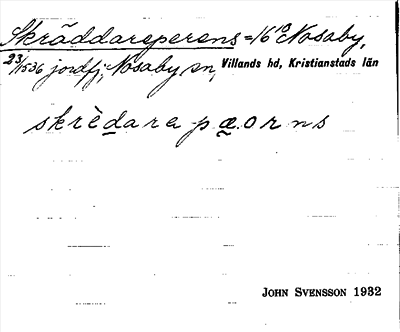 Skräddareperens = 16¹⁰ Nosaby,
23/1536 jordfj, Nosaby sn, Villands hd, Kristianstads län
skrèdara pæ.orns
JOHN SVENSSON 1932